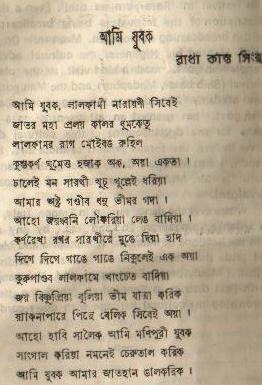 আমি যুবক
রাধা কান্ত সিংহ
আমি যুবক, লালফামী নারায়ণী সিবেই
জাতর মহা প্রলয় কালর ধুমকেতু
লালফামর রাগ মোইবঙ রুহিল
কুম্ভকর্ণ ঘুমেত্ত হজাক অক, অয়া একতা ।
চালেই মন সারথী থুচু পুল্লেই ধরিয়া
আমার অষ্ট গণ্ডীব ধনু ভীমর গদা ।
আহো জয়ধ্বনি লৌকরিয়া লেঙ বাদিয়া ।
কর্ণরেখা রথর সারথীরে মুঙে দিয়া হাদ
দিগে দিগে গাঙে গাঙে নিকুলেই এক অয়া
কুরুপাণ্ডব লালফামে খাংচেত বাদিয়া
জয় বিষ্ণুপ্রিয়া বুলিয়া ভীম যাত্রা করিক
য়্যাকনাপারে পিন্ধে বেলিক সিবেই অয়া ।
আহো হাবি সালৈক আমি মণিপুরী যুবক
সাংগাল করিয়া নমনেই চেরুতাল করিক
আমি যুবক আমার জাতহান ঙালকরিক ।